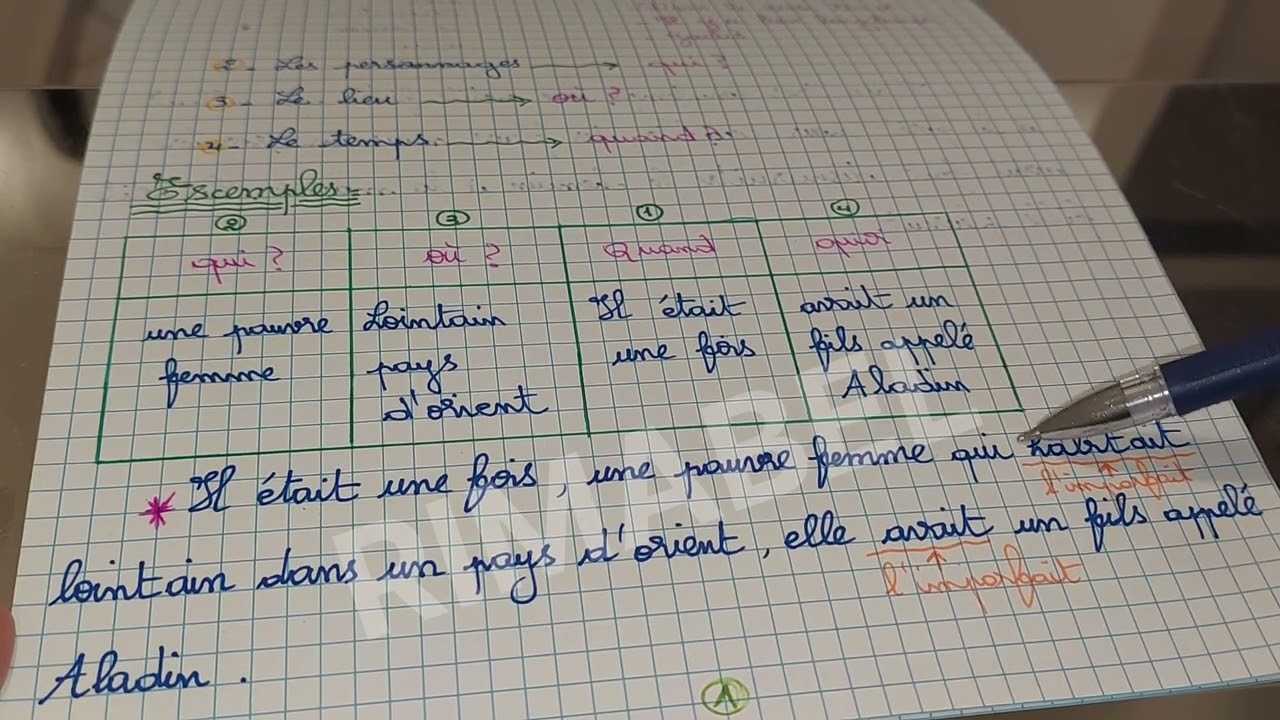 2- Les personnages → qui ?
3- Le lieu → où ?
4- Le temps → quand ?
Exemples :
② ③ ① ④
qui ? où ? Quand quoi
une pauvre Lointain Il était avait un
femme pays une fois fils appelé
d'orient Aladin
* Il était une fois, une pauvre femme qui habitait
l'imparfait
lointain dans un pays d'orient, elle avait un fils appelé
l'imparfait
Aladin.
A
RIMABEL